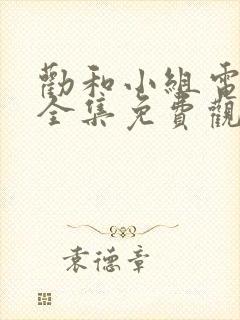 勸和小組電
全集免費觀
袁德章